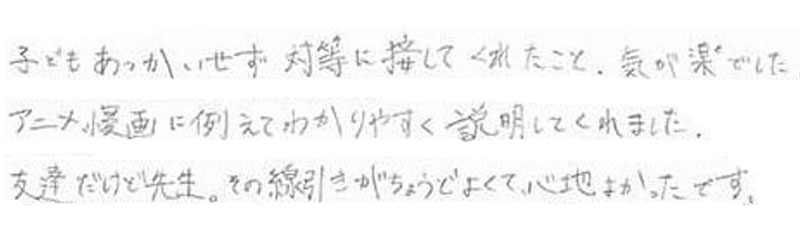 子どもあつかいせず対等に接してくれたこと、気が楽でした
アニメ、漫画に例えてわかりやすく説明してくれました。
友達だけど先生。その線引きがちょうどよくて、心地よかったです。